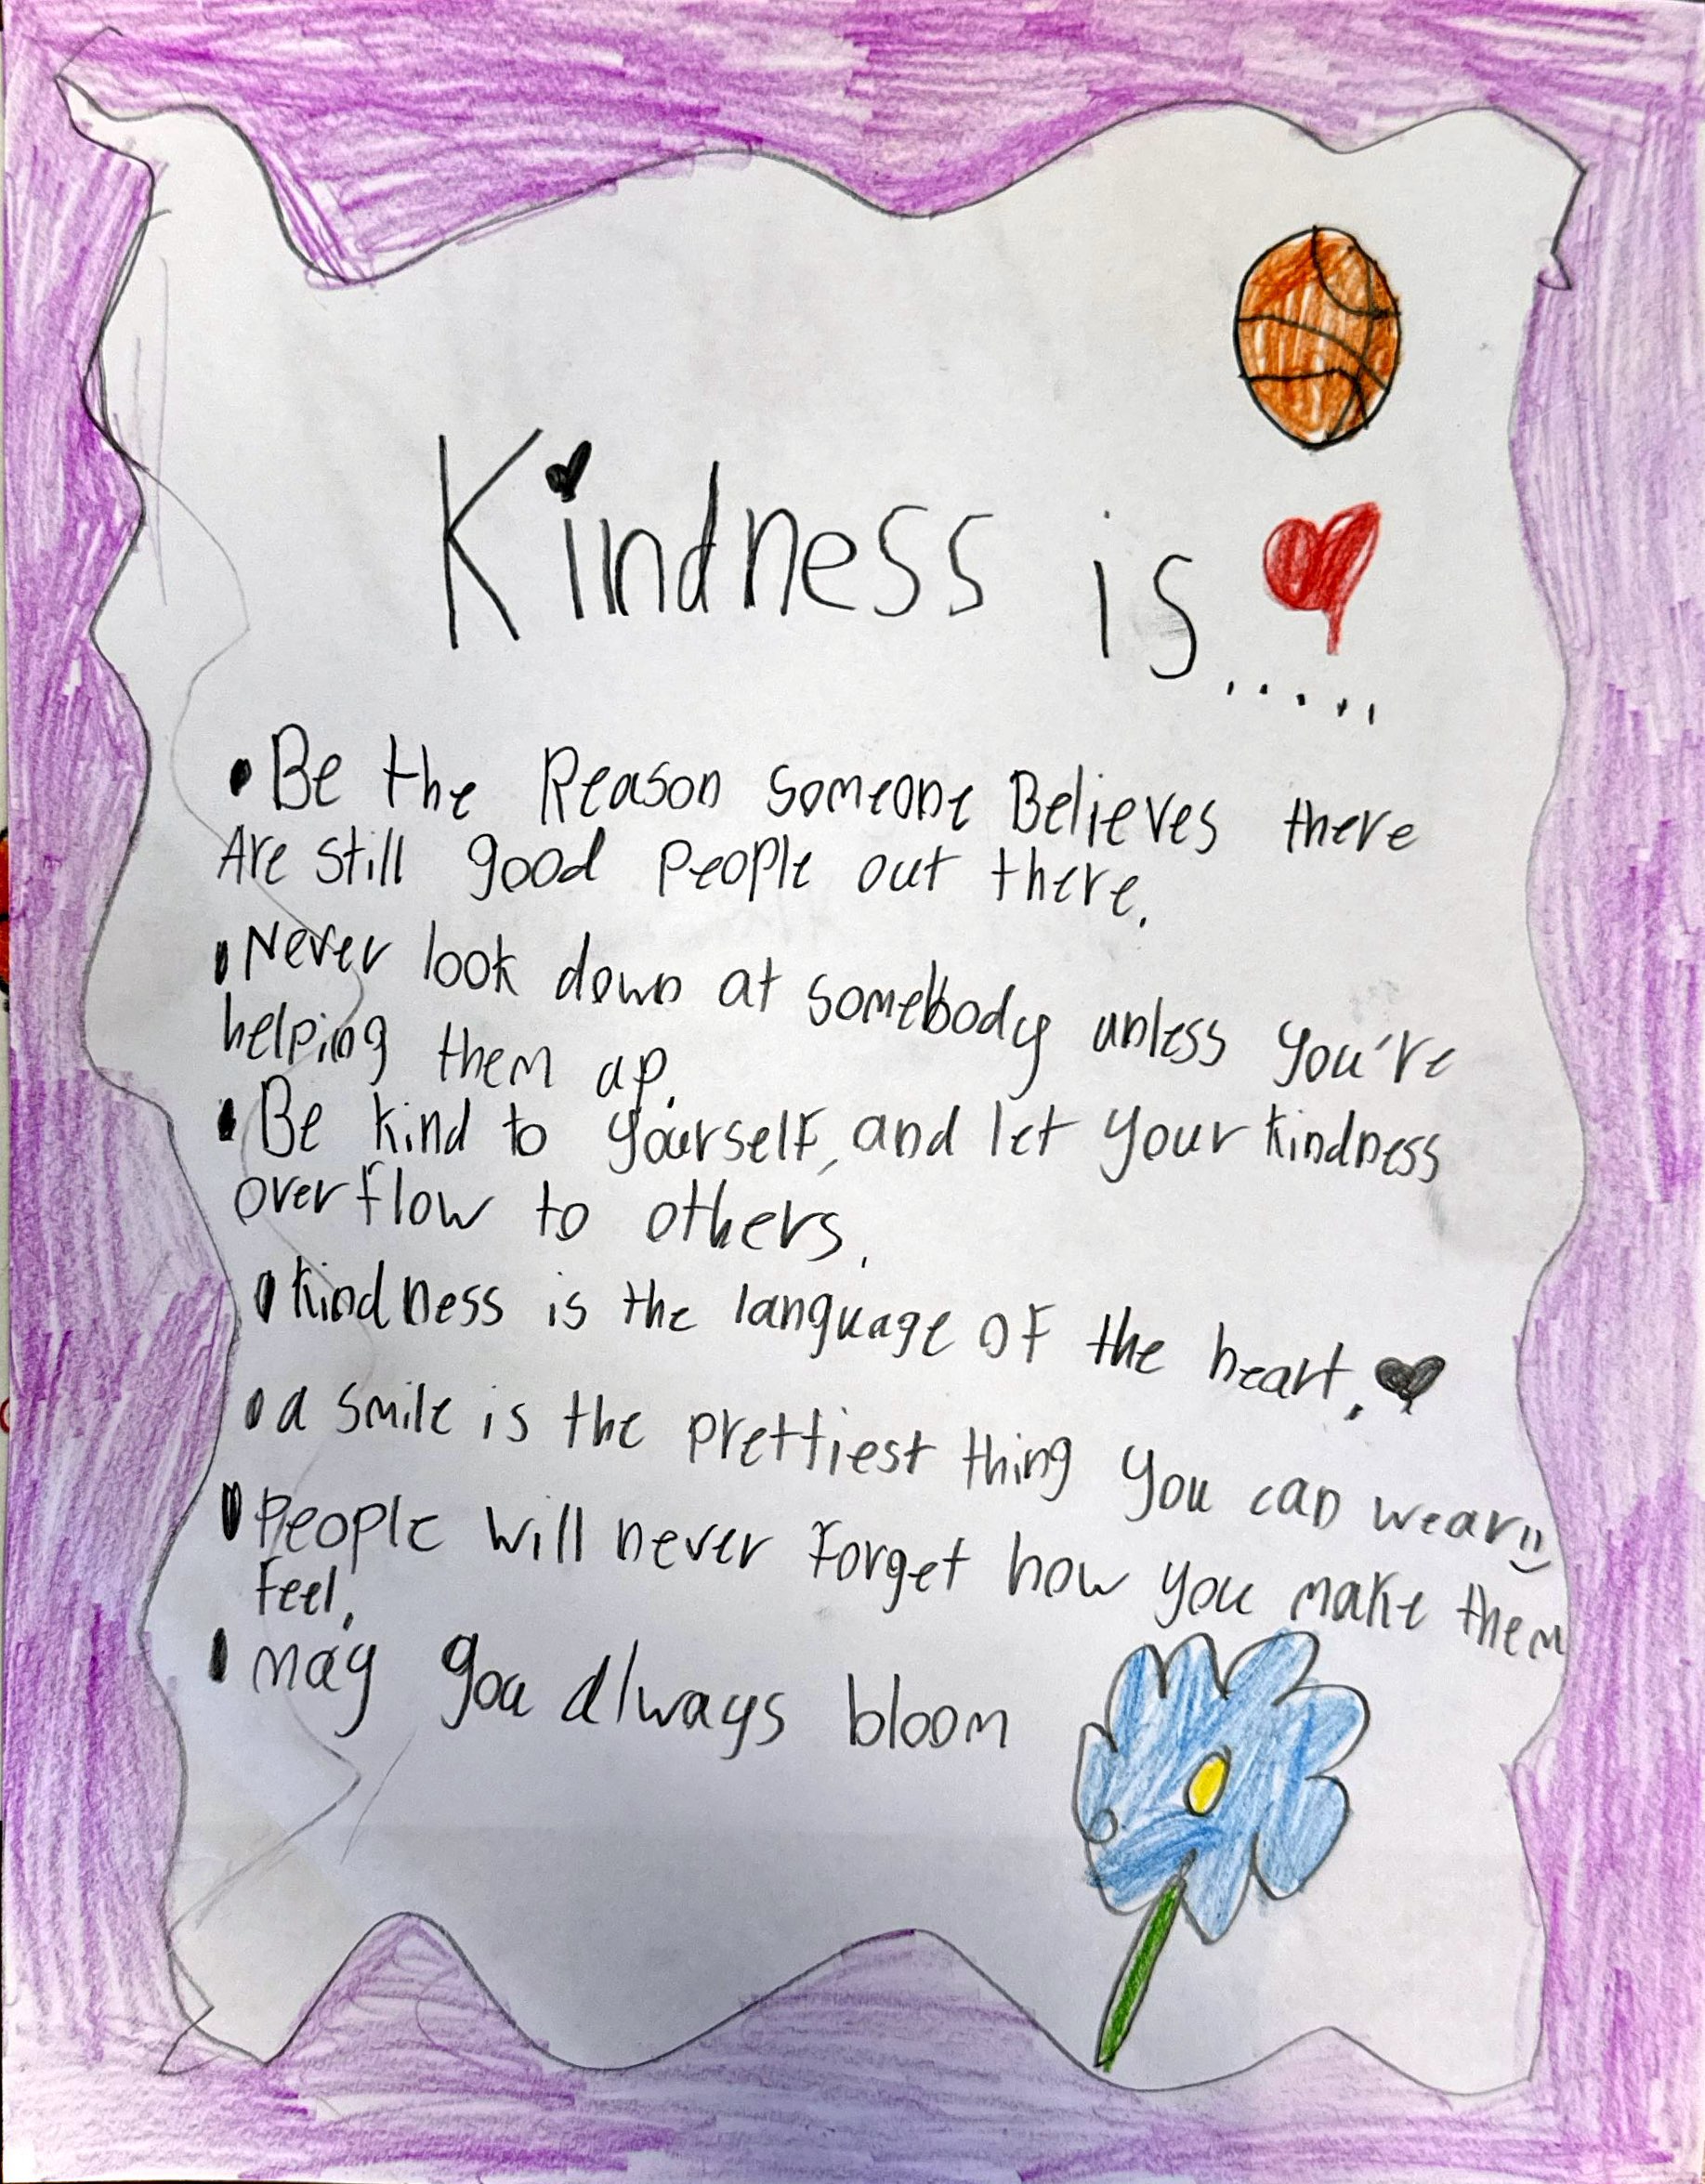 Kindness is.....
• Be the Reason someone Believes there
Are still good people out there.
• Never look down at somebody unless you're
helping them up.
• Be kind to yourself, and let your kindness
overflow to others.
• kindness is the language of the heart.
• a smile is the prettiest thing you can wear
• People will never forget how you make them
feel.
• may you always bloom